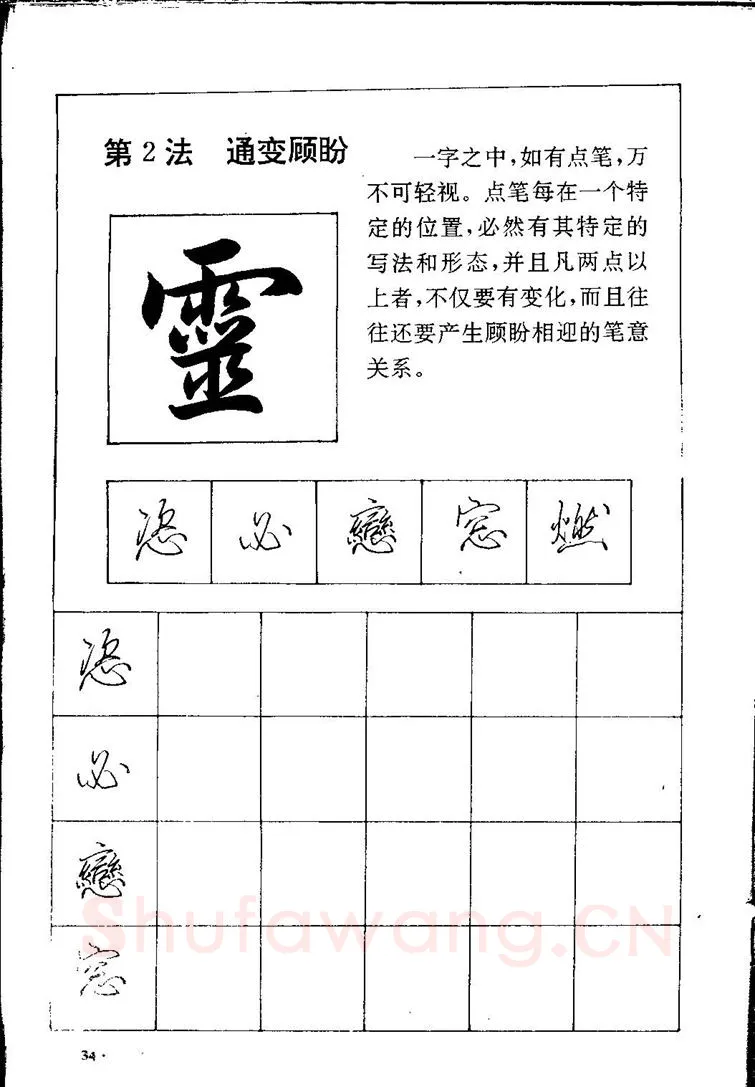 第2法 通变顾盼
一字之中,如有点笔,万
不可轻视。点笔每在一个特
定的位置,必然有其特定的
写法和形态,并且凡两点以
上者,不仅要有变化,而且往
往还要产生顾盼相迎的笔意
关系。
靈
必 戀 窓 燃
必
戀
窓
Shufawang.CN
34 ·